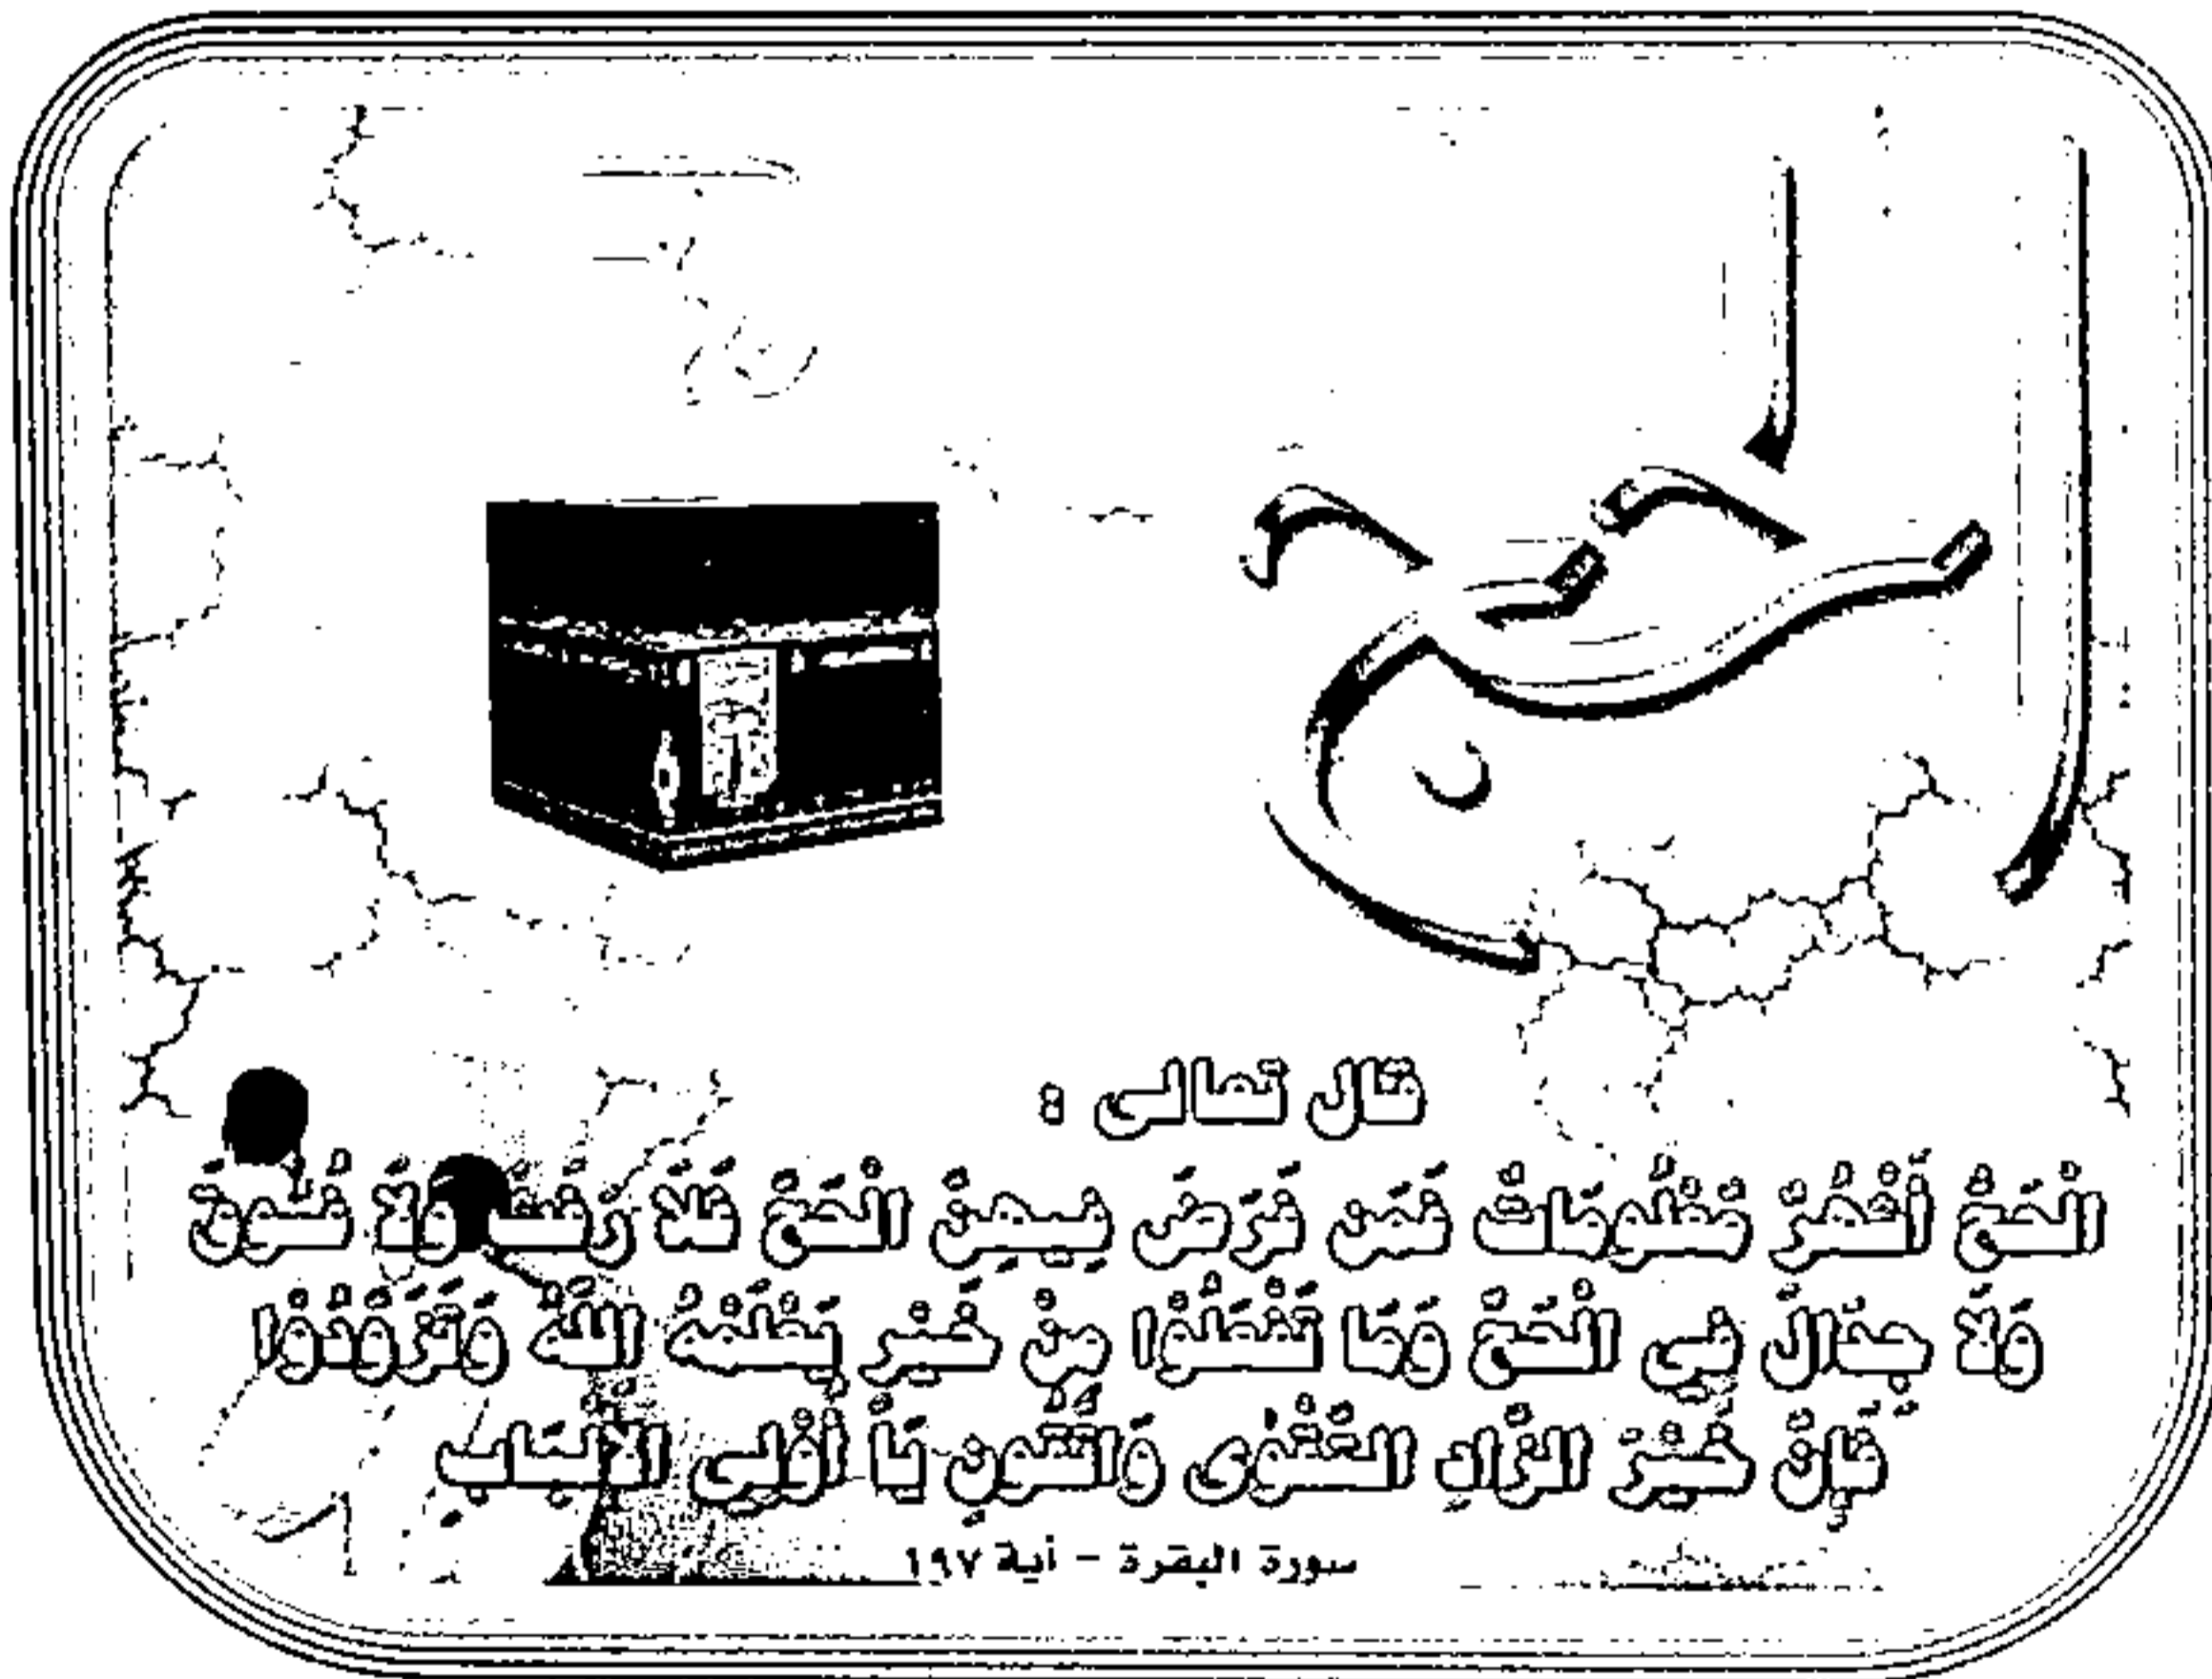 الحج
قال تعالى :
الْحَجُّ أَشْهُرٌ مَعْلُومَاتٌ فَمَن فَرَضَ فِيهِنَّ الْحَجَّ فَلَا رَفَثَ وَلَا فُسُوقَ
وَلَا جِدَالَ فِي الْحَجِّ وَمَا تَفْعَلُوا مِنْ خَيْرٍ يَعْلَمْهُ اللَّهُ وَتَزَوَّدُوا
فَإِنَّ خَيْرَ الزَّادِ التَّقْوَى وَاتَّقُونِ يَا أُوْلِي الْأَلْبَابِ
سورة البقرة - آية ١٩٧